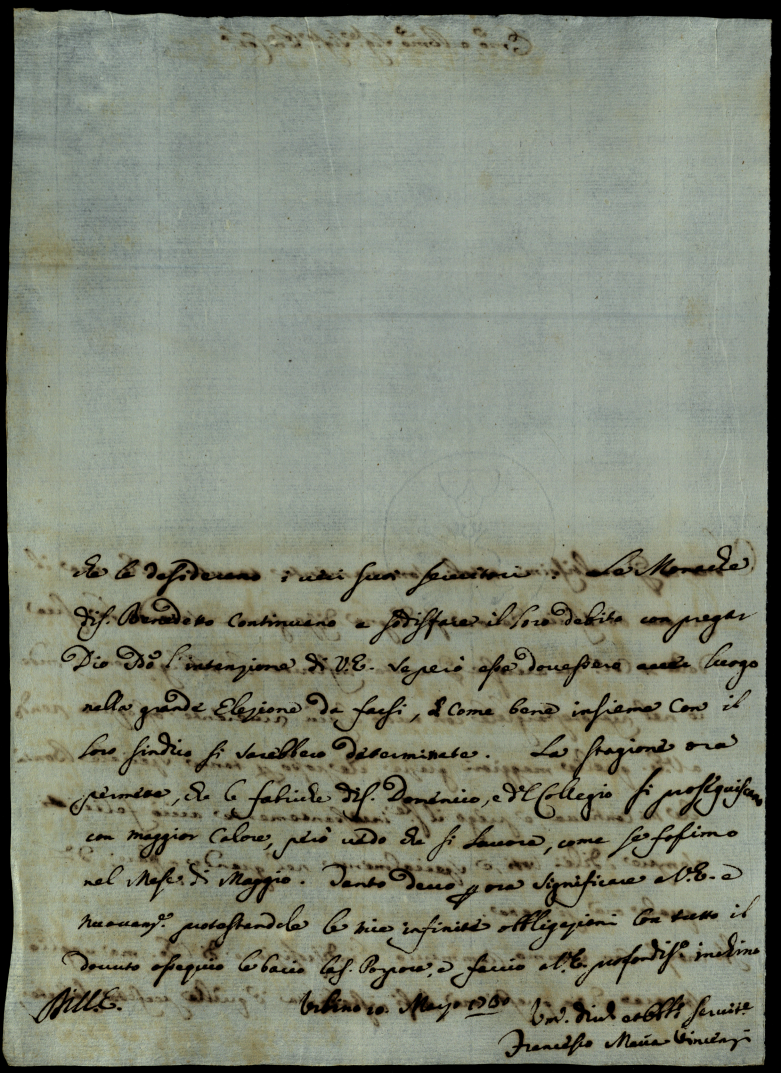 che le desiderano i veri suoi servitori. Le Monache
di S. Benedetto continuano a sodisfare il loro debito con pregar
Dio l'intenzione di V. E. se però essa dovessero aver luogo
nella grande Elezione da farsi, e come bene insieme con il
loro sindico si sarebbero determinate. La stagione ora
permette, che le fabriche di S. Domenico, e del Collegio si proseguiscano
con maggior calore, però vedo che si lavora, come se fossimo
nel Mese di Maggio. Tanto devo ora significare a V. E. e
nuovam.e protestandole le mie infinite obbligazioni con tutto il
dovuto ossequio le bacio la S. Porpora, e faccio a V. E. profondis.o inchino
Urbino 10. Marzo
Um. servit.e
Francesco Maria Vincenzi